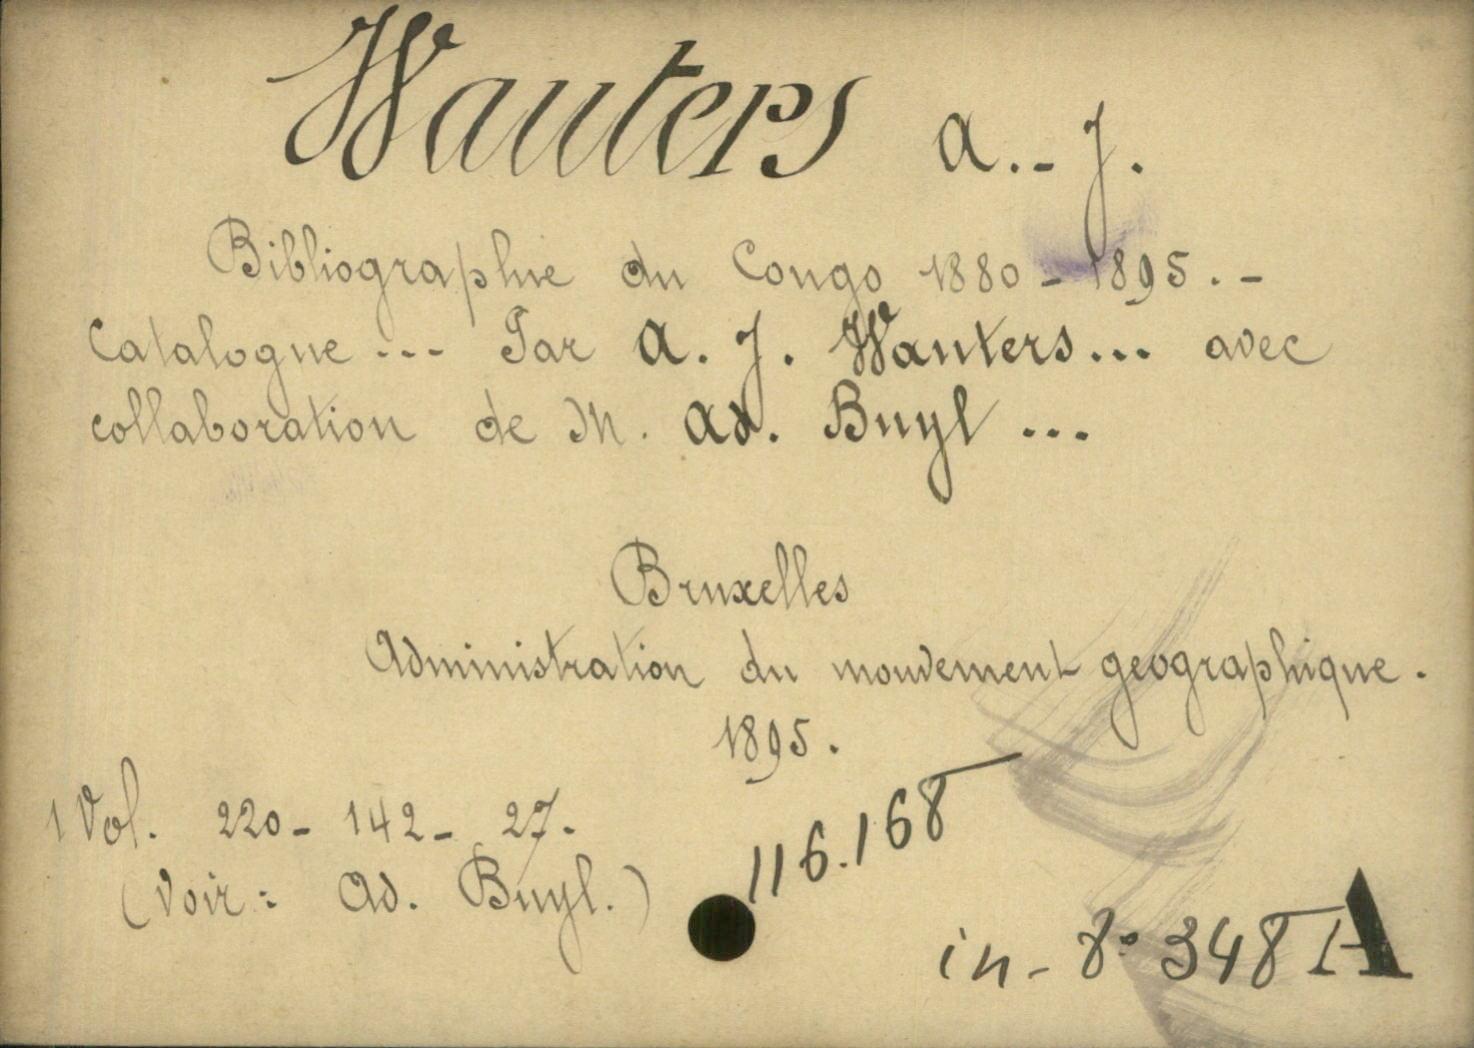 Wauters A.-J.
Bibliographie du Congo 1880-1895.-
Catalogue... Par A. J. Wauters... avec
collaboration de M. Ad. Buyl...
Bruxelles
Administration du mouvement geographique.
1895.
1 Vol. 220- 142- 27.
116.168
(Voir: Ad. Buyl.)
in-8° 348 A